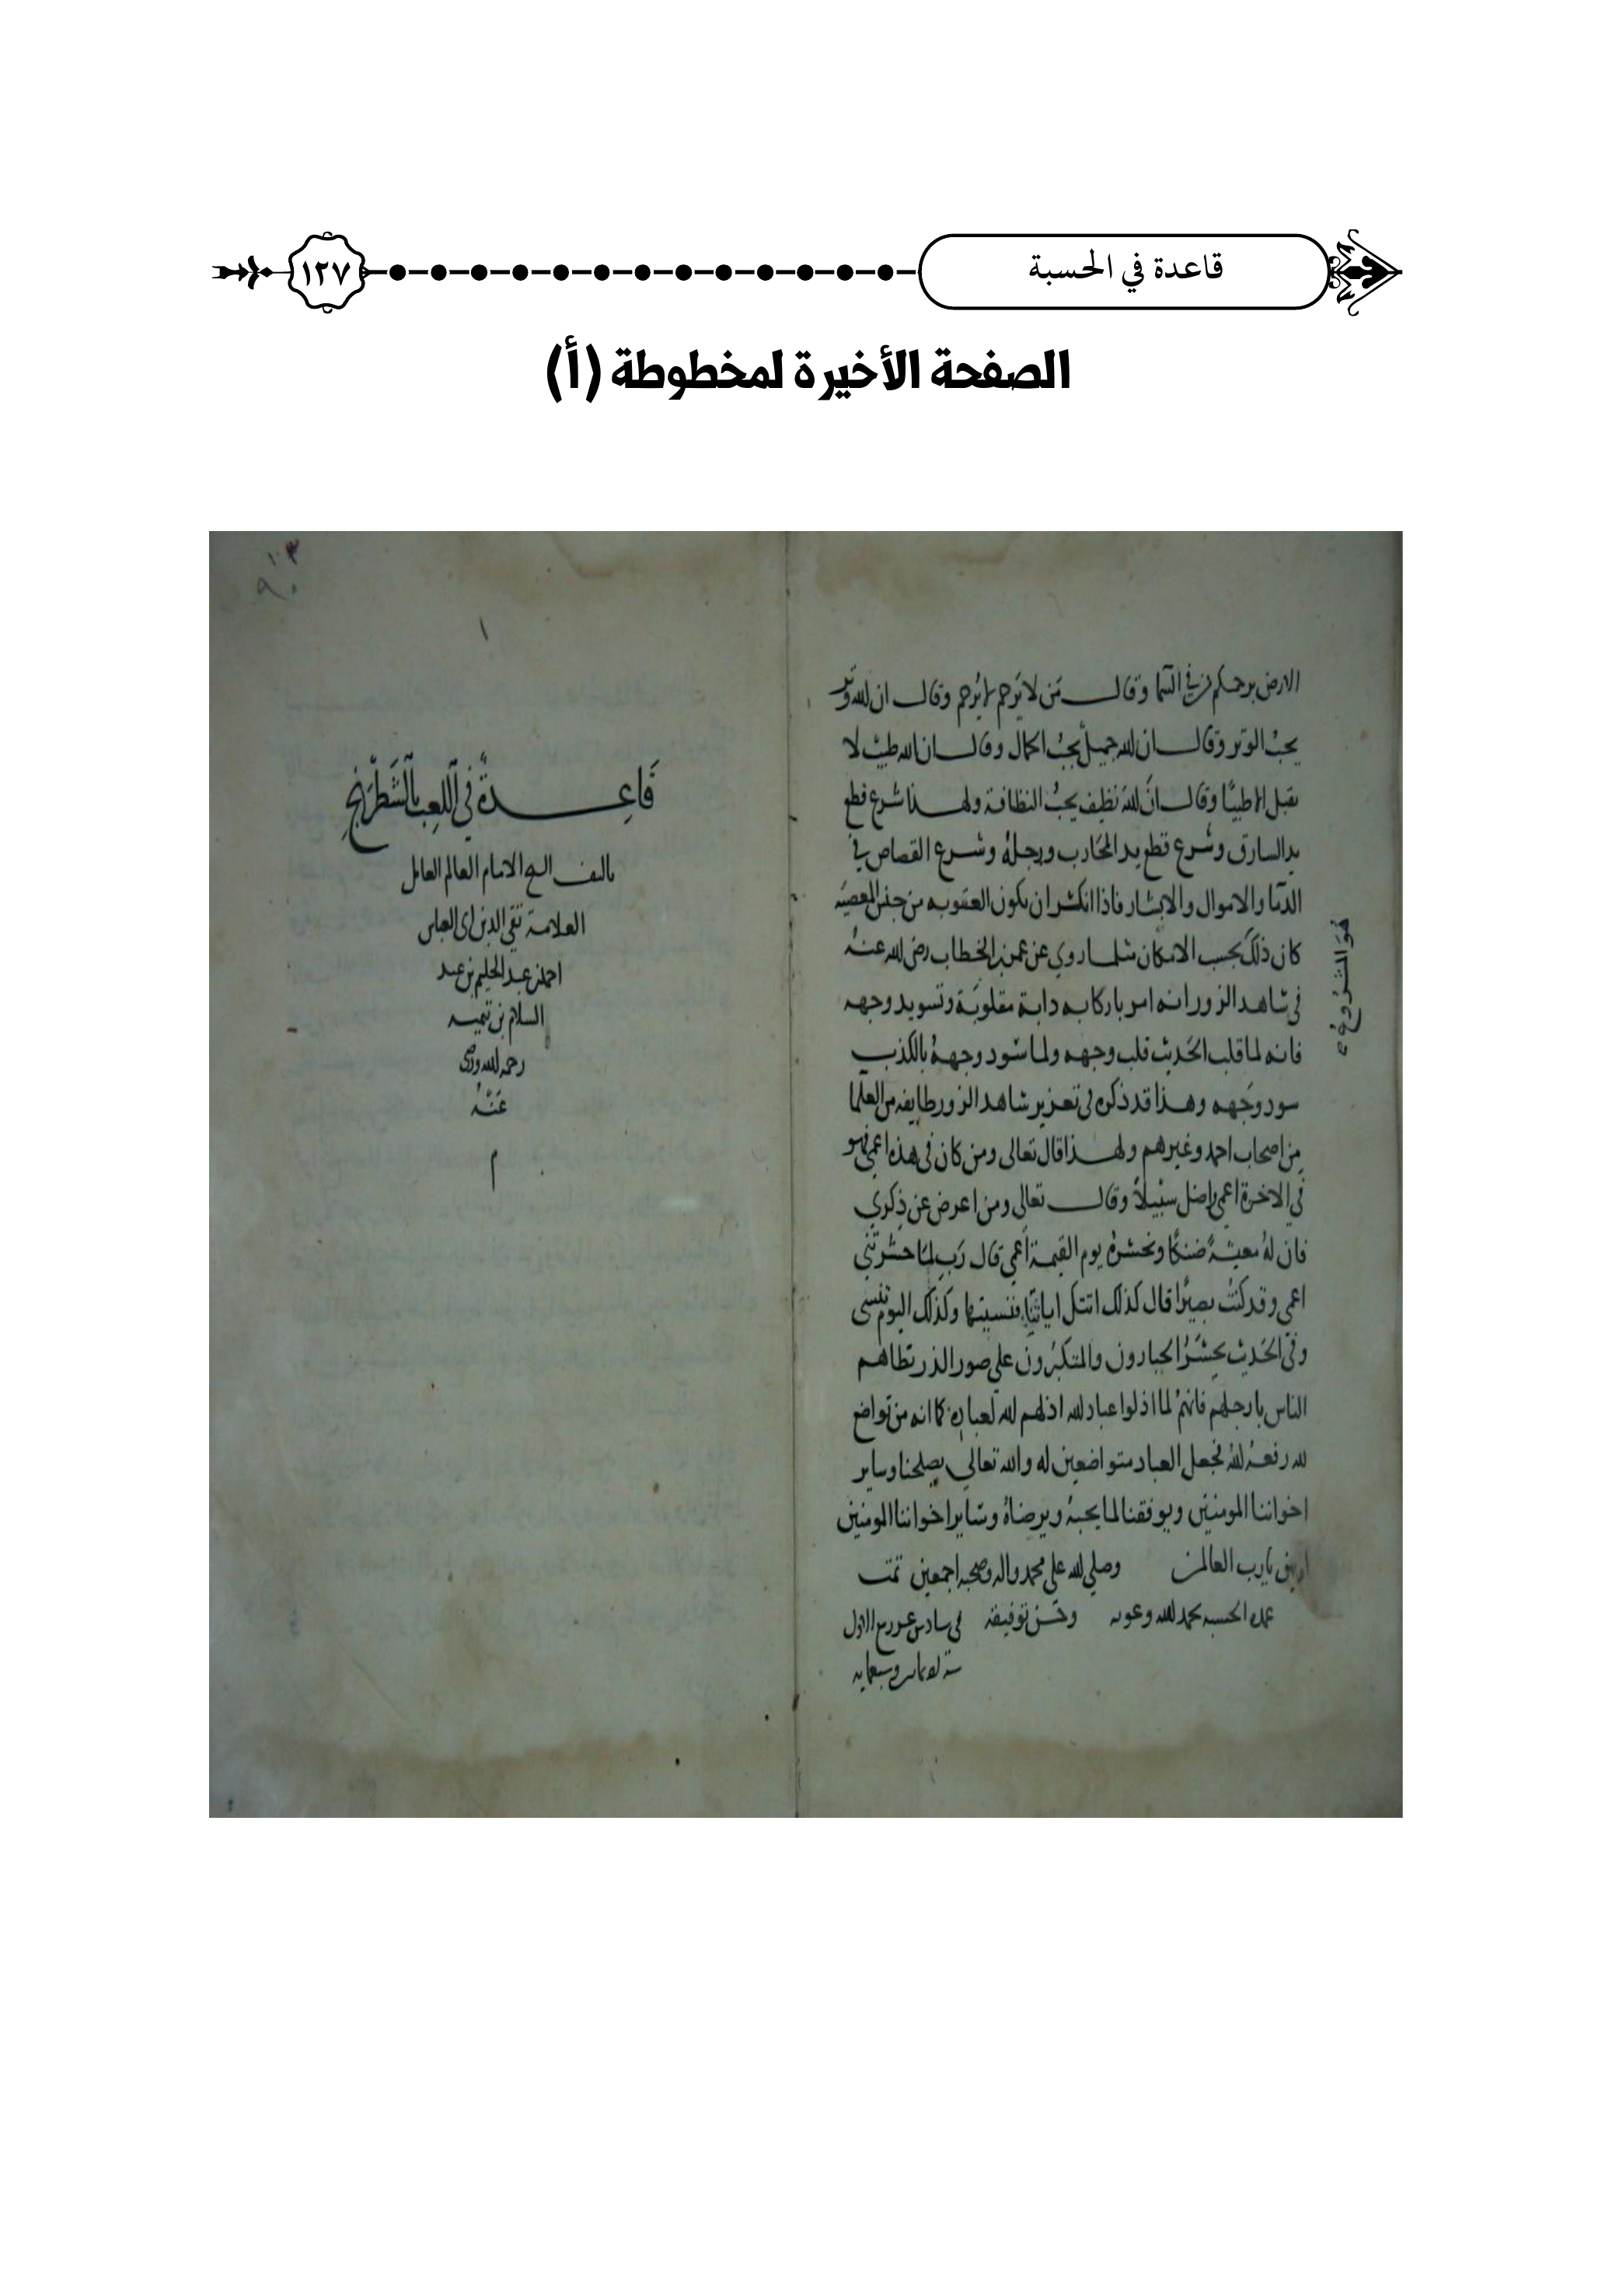 قاعدة في الحسبة
١٢٧
الصفحة الأخيرة لمخطوطة (أ)
الارض يرحمكم من في السما وقال من لا يرحم لا يرحم وقال ان لله وتر
يحب الوتر وقال ان لله جميل يحب الجمال وقال ان لله طيب لا
يقبل الا طيبا وقال ان لله نظيف يحب النظافة ولهذا شرع قطع
يد السارق وشرع قطع يد المحارب ورجله وشرع القصاص في
الدما والاموال والابشار فاذا امكن ان يكون العقوبه من جنس المعصيه
كان ذلك بحسب الامكان مثلما روي عن عمر بن الخطاب رضي لله عنه
في شاهد الزور انه امر باركابه دابة مقلوبة وتسويد وجهه
فانه لما قلب الحديث قلب وجهه ولما سود وجهه بالكذب
سود وجهه وهذا قد ذكره في تعزير شاهد الزور طايفه من العلما
من اصحاب احمد وغيرهم ولهذا قال تعالى ومن كان في هذه اعمى فهو
في الاخرة اعمى واضل سبيلا وقال تعالى ومن اعرض عن ذكري
فان له معيشة ضنكا ونحشره يوم القيمة اعمى قال رب لما حشرتني
اعمى وقد كنت بصيرا قال كذلك اتتك اياتنا فنسيتها وكذلك اليوم تنسى
وفي الحديث يحشر الجبارون والمتكبرون على صور الذر تطاهم
الناس بارجلهم فانهم لما اذلوا عباد لله اذلهم لله لعباده كما انه من تواضع
لله رفعه لله فجعل العباد متواضعين له والله تعالى يصلحنا وساير
اخواننا المومنين ويوفقنا لما يحبه ويرضاه وساير اخواننا المومنين
امين يا رب العالمين وصلى لله على محمد واله وصحبه اجمعين تمت
الحسبه بحمد لله وعونه وحسن توفيقه في سادس عشر ربيع الاول
سنة وسبعمايه
قَاعِدةٌ في اللعب بالشَّطْرَنج
تاليف الشيخ الامام العالم العامل
العلامة تقي الدين ابي العباس
احمد بن عبد الحليم بن عبد
السلام بن تيميه
رحمه لله ورضي
عَنْهُ
م